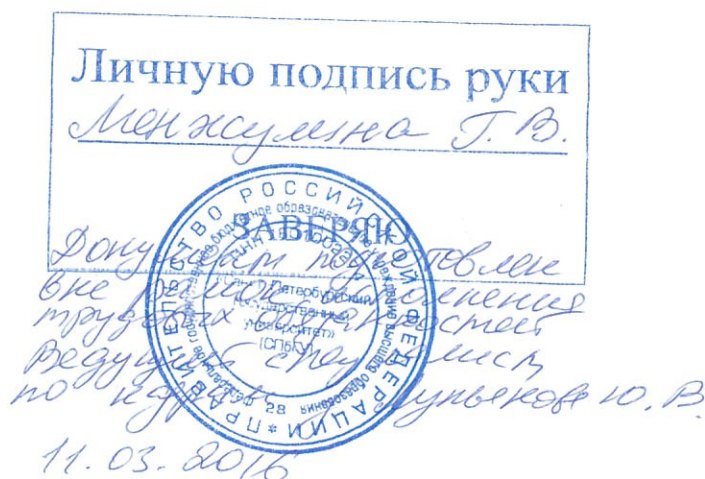 Личную подпись руки
Менжулина Г. В.
ЗАВЕРЯЮ
Документ подготовлен
вне рамок исполнения
трудовых обязанностей
Ведущий специалист
по кадрам Ю. В.
11.03.2016
ПРАВИТЕЛЬСТВО РОССИЙСКОЙ ФЕДЕРАЦИИ *
образования
«Санкт-Петербургский
государственный
университет»
(СПбГУ)
28